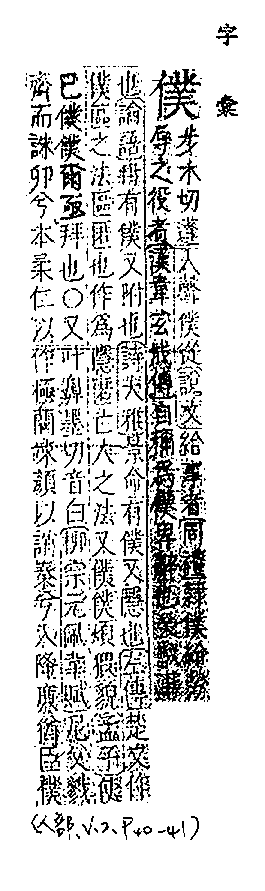 字彙
僕 步木切蓬入聲僕從說文給事者周禮隸僕給勞
辱之役者漢韋玄成傳自稱爲僕卑辭也又
也論語冉有僕又附也詩大雅景命有僕又隱也左傳楚文作
僕區之法區匿也作爲隱匿亡人之法又僕僕煩猥貌孟子使
巳僕僕爾亟拜也○又叶鼻墨切音白柳宗元佩韋賦尼父戮
齊而誅卯兮本柔仁以作極藺竦顏以誚秦兮入降廉猶臣僕
(人部、V.2、P40-41)